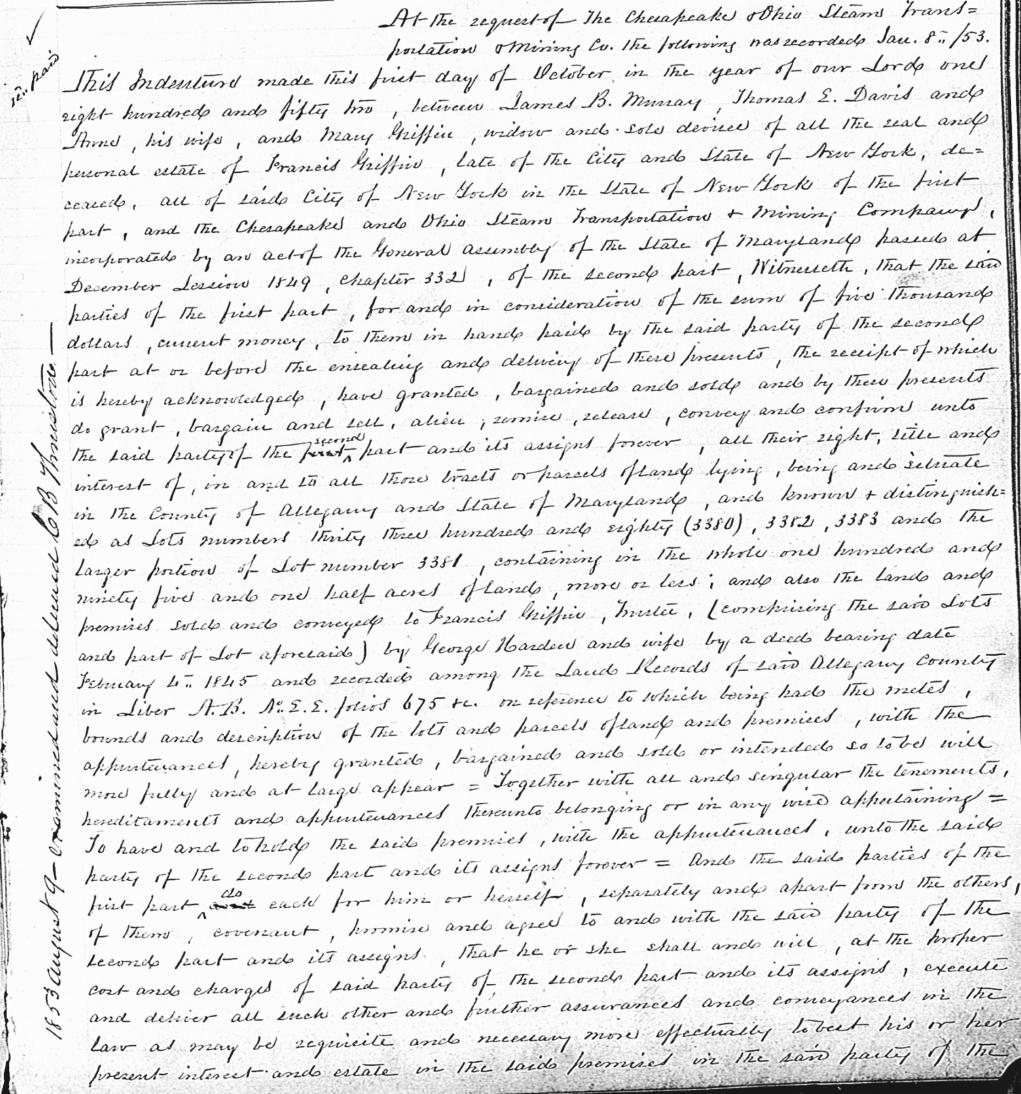 At the request of The Chesapeake & Ohio Steam Trans=
portation & Mining Co. the following was recorded Jan. 8" /53.
This Indenture made this first day of October in the year of our Lord one
eight hundred and fifty two, between James B. Murray, Thomas E. Davis and
Anne, his wife, and Mary Griffin, widow and sole devisee of all the real and
personal estate of Francis Griffin, late of the City and State of New York, de=
ceased, all of said City of New York in the State of New York of the first
part, and the Chesapeake and Ohio Steam Transportation & Mining Company,
incorporated by an act of the General Assembly of the State of Maryland passed at
December Session 1849, Chapter 332, of the second part, Witnesseth, that the said
parties of the first part, for and in consideration of the sum of five thousand
dollars, current money, to them in hand paid by the said party of the second
part at or before the ensealing and delivery of these presents, the receipt of which
is hereby acknowledged, have granted, bargained and sold and by these presents
do grant, bargain and sell, alien, remise, release, convey and confirm unto
the said party of the first second part and its assigns forever, all their right, title and
interest of, in and to all those tracts or parcels of land lying, being and situate
in the County of Allegany and State of Maryland, and known & distinguish=
ed as Lots numbers thirty three hundred and eighty (3380), 3382, 3383 and the
larger portion of Lot number 3381, containing in the whole one hundred and
ninety five and one half acres of land, more or less; and also the land and
premises sold and conveyed to Francis Griffin, Trustee, (comprising the said Lots
and part of Lot aforesaid) by George Harden and wife by a deed bearing date
February 4" 1845 and recorded among the Land Records of said Allegany County
in Liber A.B. No. E.E. folios 675 &c. on reference to which being had the metes,
bounds and description of the lots and parcels of land and premises, with the
appurtenances, hereby granted, bargained and sold or intended so to be will
more fully and at large appear = Together with all and singular the tenements,
hereditaments and appurtenances thereunto belonging or in any wise appertaining =
To have and to hold the said premises, with the appurtenances, unto the said
party of the second part and its assigns forever = And the said parties of the
first part do each for him or herself, separately and apart from the others,
of them, covenant, promise and agree to and with the said party of the
second part and its assigns, that he or she shall and will, at the proper
cost and charges of said party of the second part and its assigns, execute
and deliver all such other and further assurances and conveyances in the
law as may be requisite and necessary more effectually to vest his or her
present interest and estate in the said premises in the said party of the
1853 August 9 – Examined and delivered